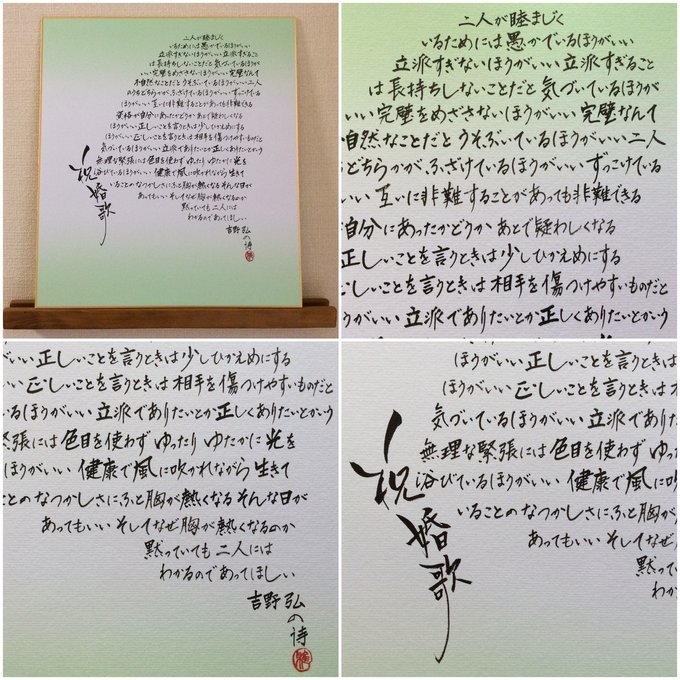 二人が睦まじく
いるためには愚かでいるほうがいい
立派すぎないほうがいい 立派すぎること
は長持ちしないことだと 気づいているほうが
いい 完璧をめざさないほうがいい 完璧なんて
不自然なことだと うそぶいているほうがいい 二人
のうちどちらかが、ふざけているほうがいい ずっこけている
ほうがいい 互いに非難することがあっても非難できる
資格が自分にあったかどうか あとで疑わしくなる
ほうがいい 正しいことを言うときは少しひかえめにする
ほうがいい 正しいことを言うときは 相手を傷つけやすいものだと
気づいているほうがいい 立派でありたいとか 正しくありたいとかいう
無理な緊張には 色目を使わず ゆったり ゆたかに 光を
浴びているほうがいい 健康で 風に吹かれながら 生きて
いることのなつかしさに ふと 胸が熱くなる そんな日が
あってもいい そしてなぜ 胸が熱くなるのか
黙っていても 二人には
わかるのであってほしい
吉野弘の詩
祝婚歌
二人が睦まじく
いるためには愚かでいるほうがいい
立派すぎないほうがいい 立派すぎること
は長持ちしないことだと 気づいているほうが
いい 完璧をめざさないほうがいい 完璧なんて
自然なことだと うそぶいているほうがいい 二人
どちらかが、ふざけているほうがいい ずっこけている
いい 互いに非難することがあっても非難できる
自分にあったかどうか あとで疑わしくなる
正しいことを言うときは少しひかえめにする
正しいことを言うときは 相手を傷つけやすいものだと
いるほうがいい 立派でありたいとか 正しくありたいとかいう
がいい 正しいことを言うときは 少しひかえめにする
いい 正しいことを言うときは 相手を傷つけやすいものだと
いるほうがいい 立派でありたいとか 正しくありたいとかいう
緊張には 色目を使わず ゆったり ゆたかに 光を
ほうがいい 健康で 風に吹かれながら 生きて
ことのなつかしさに ふと 胸が熱くなる そんな日が
あってもいい そしてなぜ 胸が熱くなるのか
黙っていても 二人には
わかるのであってほしい
吉野弘の詩
ほうがいい 正しいことを言うときは
ほうがいい 正しいことを言うときは 相
気づいているほうがいい 立派でありた
無理な緊張には 色目を使わず ゆっ
浴びているほうがいい 健康で 風に吹
いることのなつかしさに ふと 胸が
あってもいい そしてなぜ
黙ってい
わか
祝婚歌